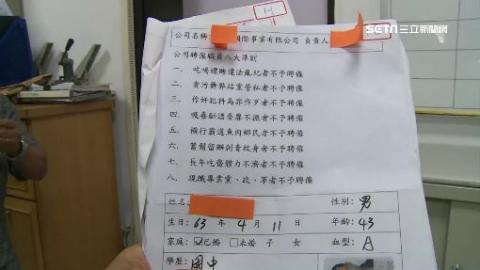 SETN三立新聞網
公司名稱 國際事業有限公司 負責人
公司聘僱職員八大準則
一、 吃喝嫖賭違法亂紀者不予聘僱
二、 貪污舞弊結黨營私者不予聘僱
三、 作奸犯科為非作歹者不予聘僱
四、 吸毒酗酒委靡不振者不予聘僱
五、 橫行霸道魚肉鄉民者不予聘僱
六、 蓄鬍留辮刺青紋身者不予聘僱
七、 長年吃齋體力不濟者不予聘僱
八、 現職專業黨、政、軍者不予聘僱
姓名: 性別: 男
生日: 63 年 4 月 11 日 年齡: 43
家庭: ☑已婚 □未婚 子 女 血型: A
學歷: 國中